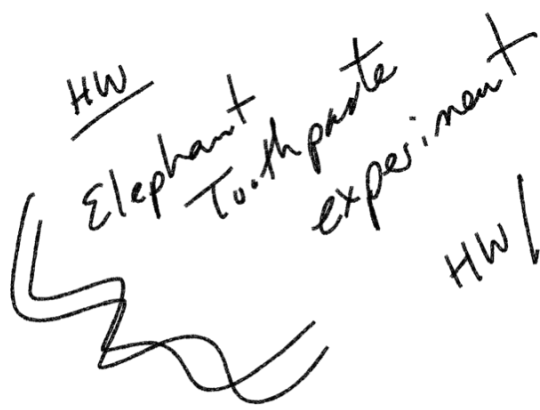 HW
Elephant
Toothpaste
experiment
HW